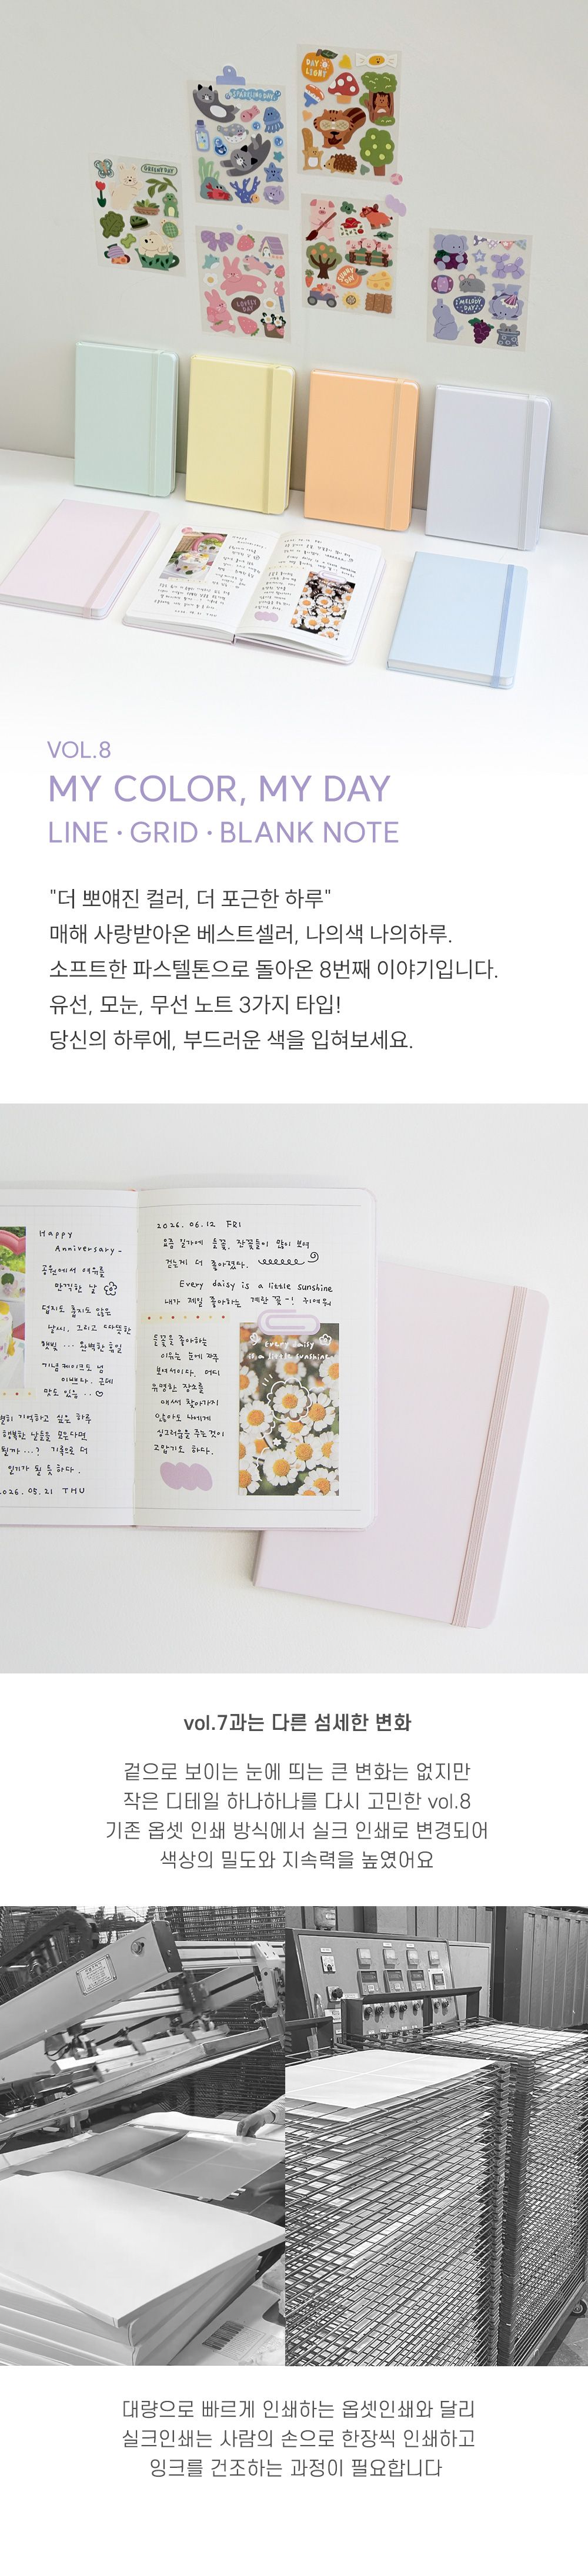 DAY LIGHT
SPARKLING DAY
GREENY DAY
LOVELY DAY
SUNNY DAY
MELODY DAY
VOL.8
MY COLOR, MY DAY
LINE · GRID · BLANK NOTE
"더 뽀얘진 컬러, 더 포근한 하루"
매해 사랑받아온 베스트셀러, 나의색 나의하루.
소프트한 파스텔톤으로 돌아온 8번째 이야기입니다.
유선, 모눈, 무선 노트 3가지 타입!
당신의 하루에, 부드러운 색을 입혀보세요.
Happy
Anniversary-
공원에서 여유를
만끽한 날
덥지도 춥지도 않은
날씨, 그리고 따뜻한
햇빛 ... 완벽한 휴일
기념 케이크도 넘
이쁘다. 근데
맛도 있음 ..
히 기억하고 싶은 하루
행복한 날들을 모은다면
될까 ...? 기록으로 더
일기가 될 듯 하다.
026. 05. 21 THU
2026. 06. 12 FRI
요즘 길가에 들꽃, 잔꽃들이 많이 보여
걷는게 더 좋아졌다.
Every daisy is a little sunshine
내가 제일 좋아하는 계란 꽃-! 귀여워
들꽃을 좋아하는
이유는 눈에 자주
보여서이다. 어디
유명한 장소를
애써 찾아가지
않아도 나에게
싱그러움을 주는것이
고맙기도 하다.
every daisy
is a little sunshine
vol.7과는 다른 섬세한 변화
겉으로 보이는 눈에 띄는 큰 변화는 없지만
작은 디테일 하나하나를 다시 고민한 vol.8
기존 옵셋 인쇄 방식에서 실크 인쇄로 변경되어
색상의 밀도와 지속력을 높였어요
대량으로 빠르게 인쇄하는 옵셋인쇄와 달리
실크인쇄는 사람의 손으로 한장씩 인쇄하고
잉크를 건조하는 과정이 필요합니다